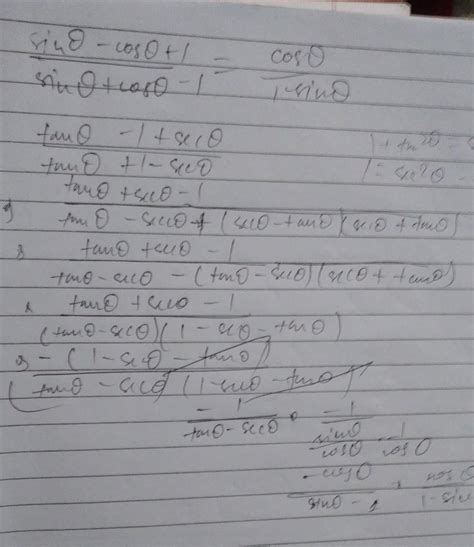 sinθ - cosθ + 1 / sinθ + cosθ - 1 = cosθ / 1 - sinθ
tanθ - 1 + secθ / tanθ + 1 - secθ
1 + tan²θ =
1 = sec²θ -
tanθ + secθ - 1 / tanθ - secθ + (secθ - tanθ)(secθ + tanθ)
tanθ + secθ - 1 / tanθ - secθ - (tanθ - secθ)(secθ + tanθ)
tanθ + secθ - 1 / (tanθ - secθ)(1 - secθ - tanθ)
- (1 - secθ - tanθ) / (tanθ - secθ)(1 - secθ - tanθ)
- 1 / tanθ - secθ = - 1 / sinθ/cosθ - 1/cosθ
- cosθ / sinθ - 1 = cosθ / 1 - sin